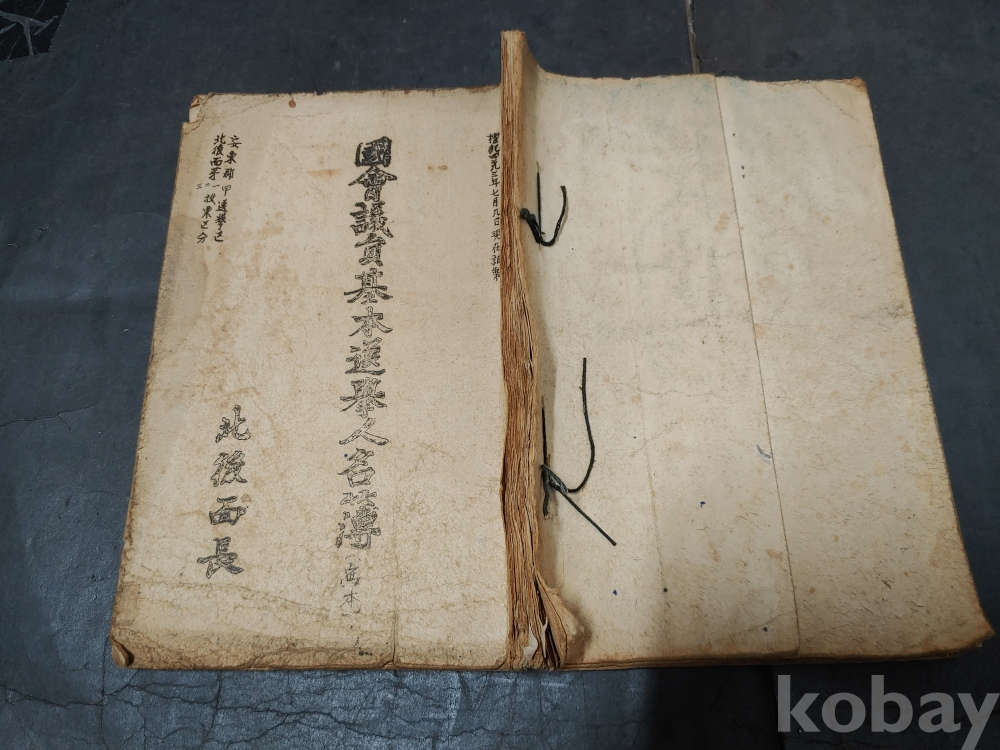 檀紀四二九三年七月九日現在調製
國會議員基本選擧人名簿
安東郡甲選擧區
北後面第一投票區分
北後面長
kobay